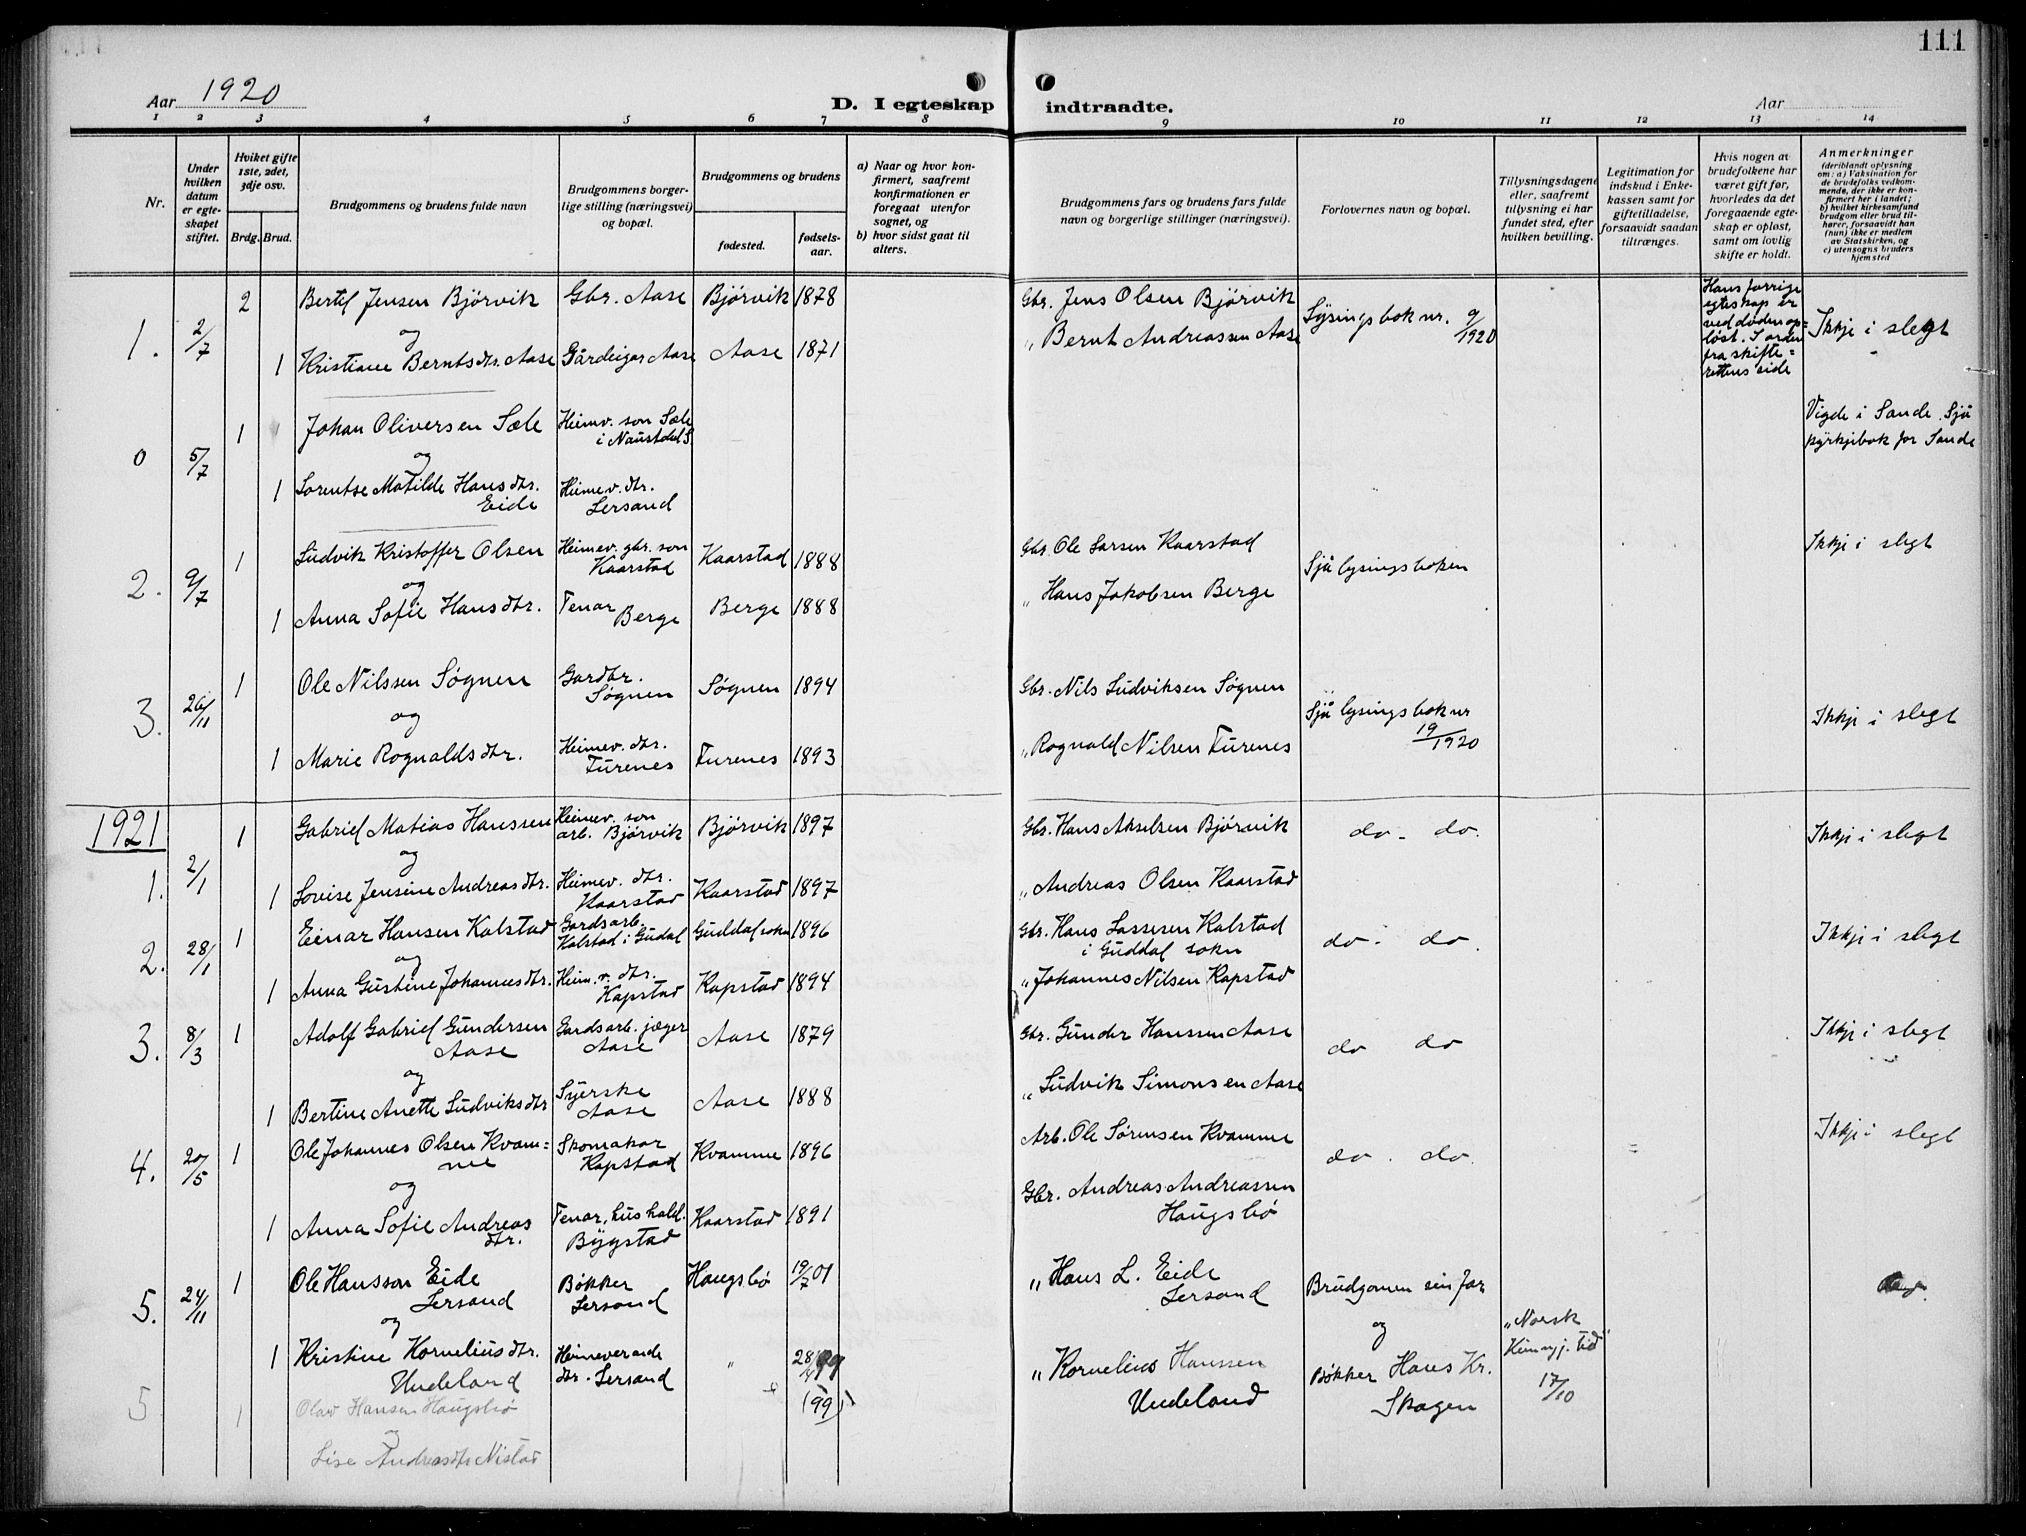 111
Aar 1920
D. I egteskap indtraadte.
Aar
1 2 3 4 5 6 7 8 9 10 11 12 13 14
Nr.
Under hvilken datum er egteskapet stiftet.
Hviket gifte 1ste, 2det, 3dje osv.
Brdg. Brud.
Brudgommens og brudens fulde navn
Brudgommens borgerlige stilling (næringsvei) og bopæl.
Brudgommens og brudens
fødested.
fødselsaar.
a) Naar og hvor konfirmert, saafremt konfirmationen er foregaat utenfor sognet, og
b) hvor sidst gaat til alters.
Brudgommens fars og brudens fars fulde navn og borgerlige stillinger (næringsvei).
Forlovernes navn og bopæl.
Tillysningsdagene eller, saafremt tillysning ei har fundet sted, efter hvilken bevilling.
Legitimation for indskud i Enkekassen samt for giftetilladelse, forsaavidt saadan tiltrænges.
Hvis nogen av brudefolkene har været gift før, hvorledes da det foregaaende egteskap er opløst, samt om lovlig skifte er holdt.
Anmerkninger
(deriblandt oplysning om: a) Vaksination for de brudefolks vedkommende, der ikke er konfirmert her i landet; b) hvilket kirkesamfund brudgom eller brud tilhører, forsaavidt han (hun) ikke er medlem av Statskirken, og c) utensogns bruders hjemsted
1. 2/7 2 Bertel Jensen Bjørvik Gbr. Aase Bjørvik 1878 Gbr. Jens Olsen Bjørvik Lysingsbok nr. 9/1920 Hans forrige egteskap er ved døden opløst. I orden fra skifterettens side Ikkje i slegt
og
1 Kristiane Berntsdtr. Aase Gårdeigar Aase Aase 1871 " Bernt Andreassen Aase
0 5/7 1 Johan Oliversen Sæle Heimv. son Sæle i Naustdal S. Vigde i Sande. Sjå kyrkjebok for Sande
og
1 Lorentse Matilde Hansdtr. Eide Heimev. dtr. Lersand
2. 9/7 1 Ludvik Kristoffer Olsen Heimev. gbr. son Kaarstad Kaarstad 1888 Gbr. Ole Larsen Kaarstad Sjå lysingsboken Ikkje i slegt
og
1 Anna Sofie Hansdtr. Tenar Berge Berge 1888 " Hans Jakobsen Berge
3. 26/11 1 Ole Nilssen Søgnen Gardbr. Søgnen Søgnen 1894 Gbr. Nils Ludviksen Søgnen Sjå lysingsbok nr 19/1920 Ikkje i slegt
og
1 Marie Rognaldsdtr. Heimev. dtr. Furenes Furenes 1893 " Rognald Nilsen Furenes
1921
1. 2/1 1 Gabriel Matias Hanssen Heimev. son arb. Bjørvik Bjørvik 1897 Gbr. Hans Akselsen Bjørvik do - do. Ikkje i slegt
og
1 Lovise Jensine Andreasdtr. Heimev. dtr. Kaarstad Kaarstad 1897 " Andreas Olsen Kaarstad
2. 28/1 1 Einar Hansen Kalstad Gardsarb. Kalstad i Gudal Guddal sokn 1896 Gbr. Hans Lassesen Kalstad i Guddal sokn do - do. Ikkje i slegt
og
1 Anna Gustine Johannesdtr. Heim. v. dtr. Kapstad Kapstad 1894 " Johannes Nilsen Kapstad
3. 8/3 1 Adolf Gabriel Gundersen Aase Gardsarb. jæger Aase Aase 1879 Gbr. Gunder Hanssen Aase do do Ikkje i slegt
og
1 Bertine Anette Ludviksdtr Syerske Aase Aase 1888 " Ludvik Simonsen Aase
4. 20/5 1 Ole Johannes Olsen Kvamme Skomakar Kapstad Kvamme 1896 Arb. Ole Sørensen Kvamme do. do. Ikkje i slegt
og
1 Anna Sofie Andreasdtr. Tenar, hushald. Bygstad Kaarstad 1891 Gbr. Andreas Andreassen Haugsbø
5. 24/11 1 Ole Hansson Eide Lersand Bøkker Lersand Haugsbø 19/7 01 " Hans L. Eide Lersand Brudgomen sin far
og
1 Kristine Korneliusdtr. Undeland Heimeverande dtr. Lersand " 28/4 99 (99) " Kornelius Hanssen Undeland og Bøkker Hans Kr. Skagen "Norsk Kunngj. tid" 17/10
5 1 Olav Hansen Haugsbø
og
Lise Andreasdtr Nistad